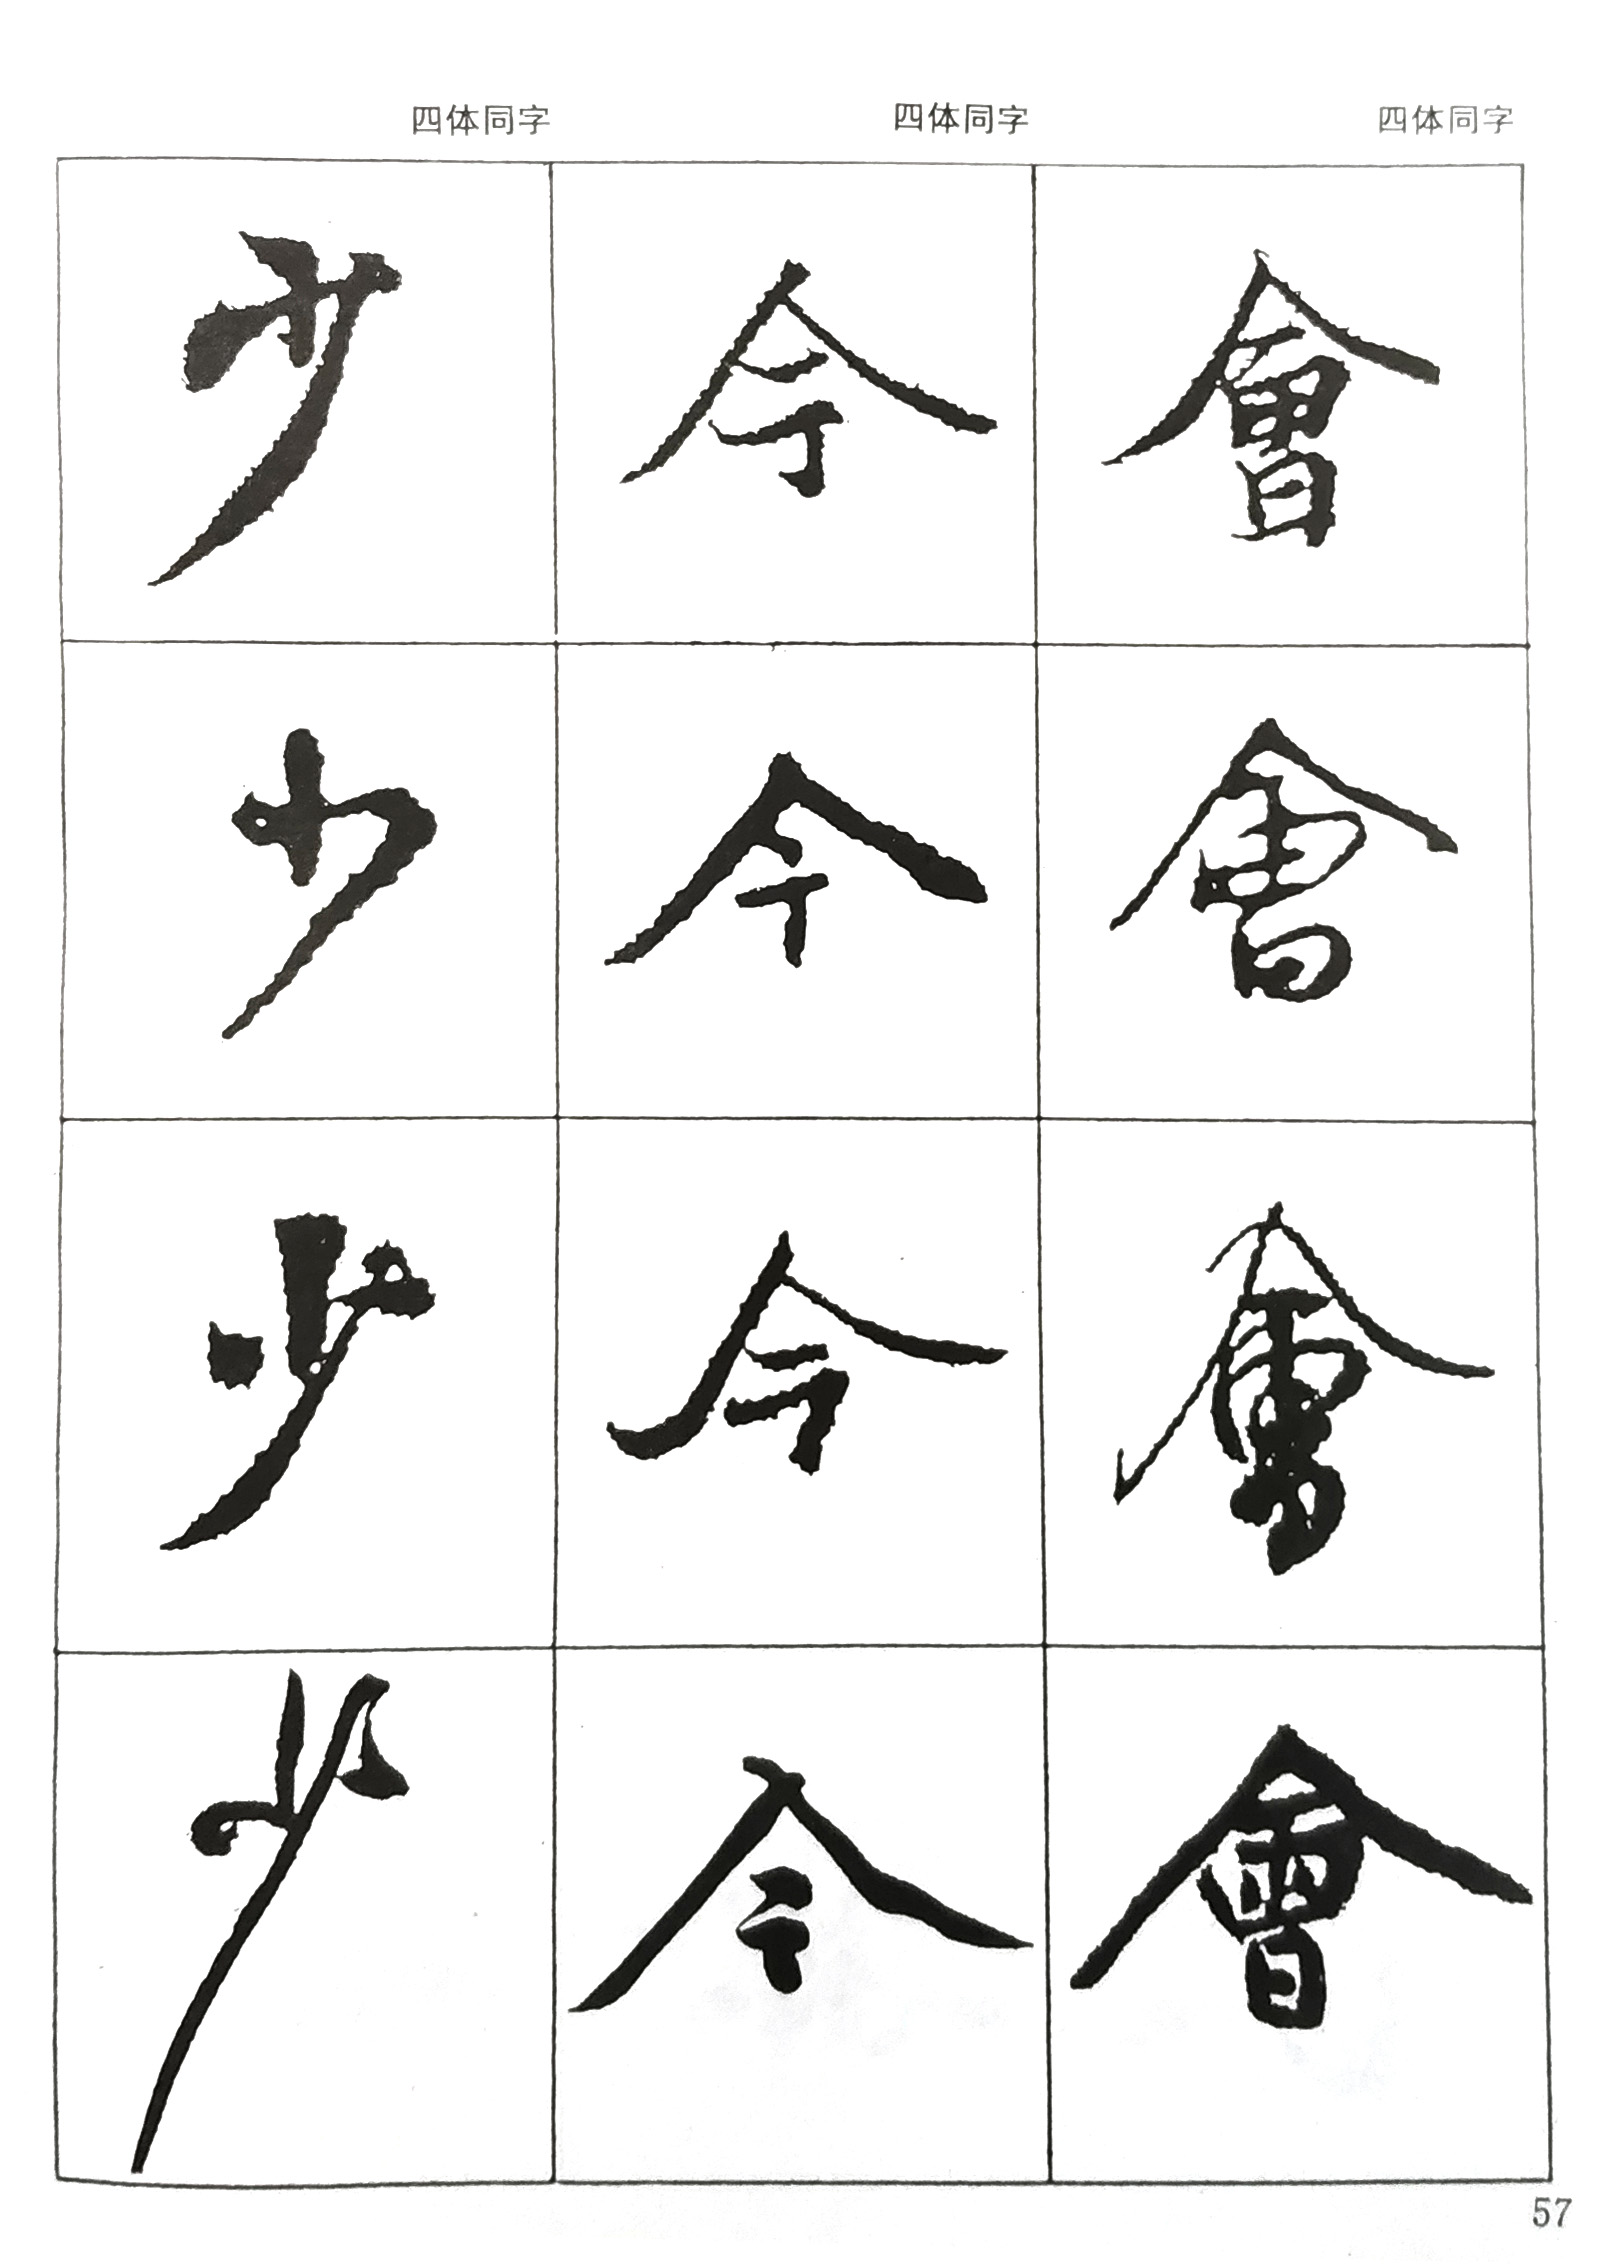 四体同字 四体同字 四体同字
少 今 會
少 今 會
少 今 會
少 今 會
57